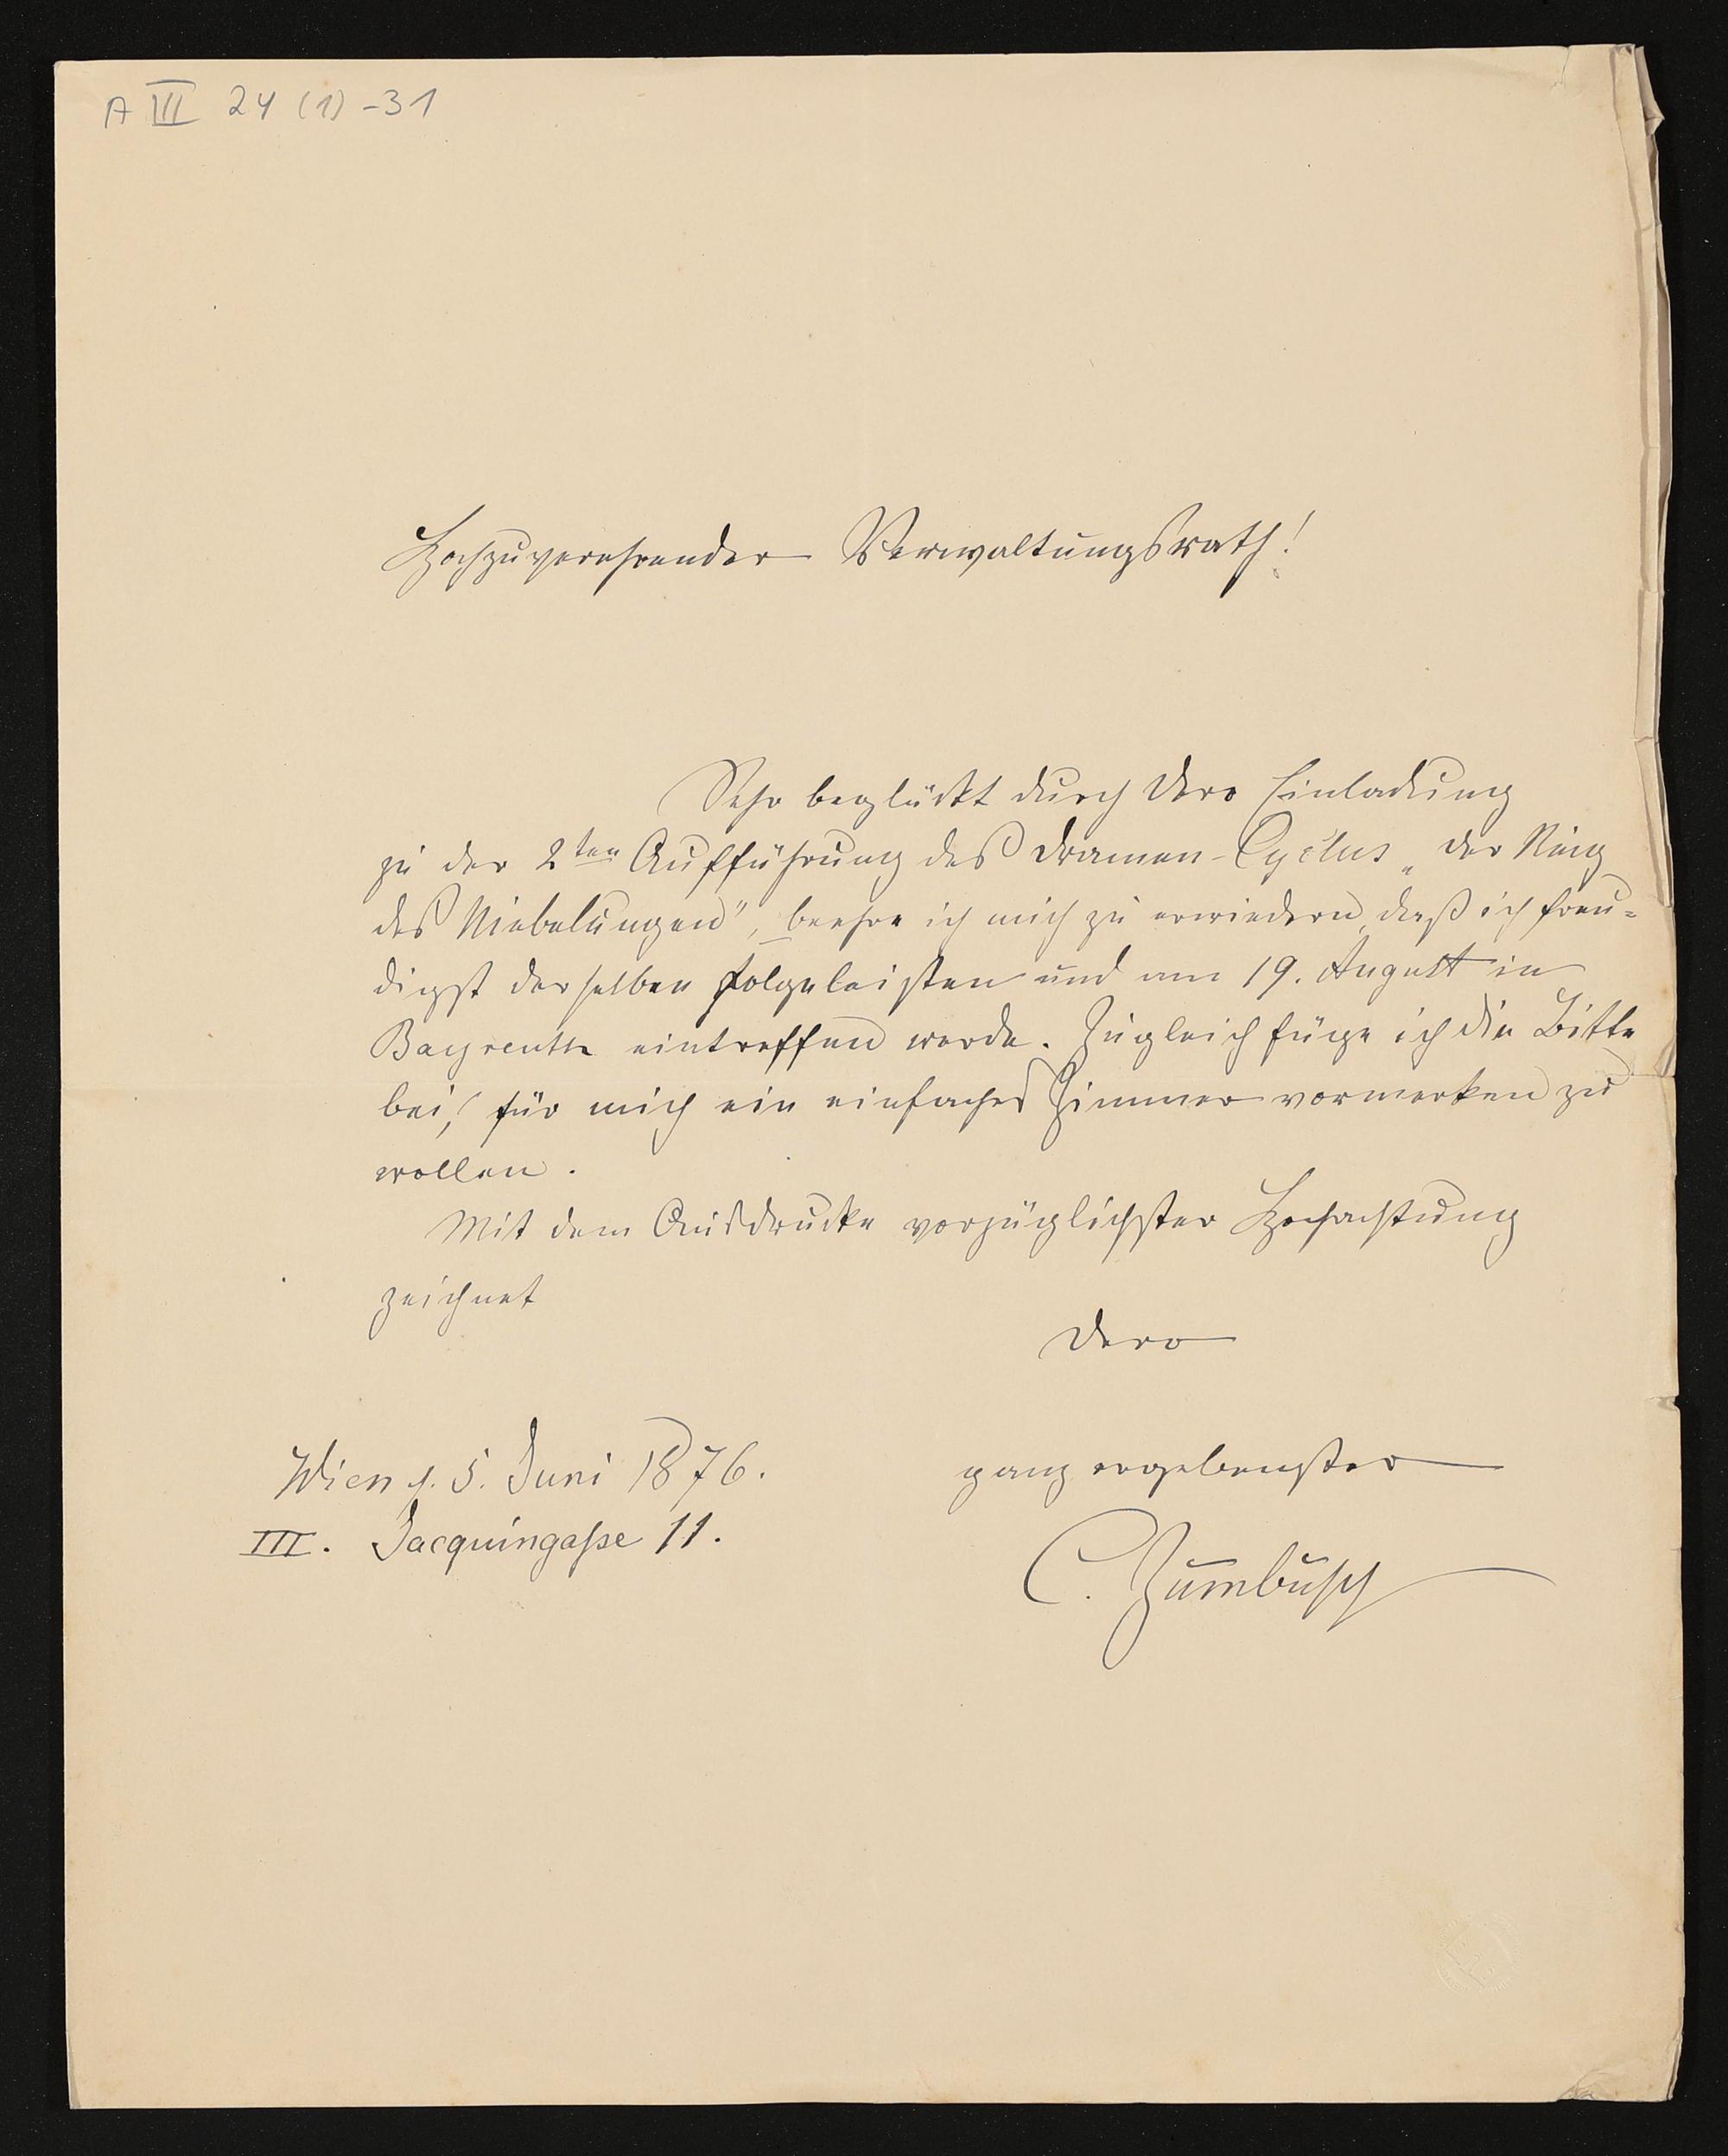 A VII 24 (1) -31
Hochzuverehrender Verwaltungsrath!
Sehr beglückt durch Dero Einladung
zu der 2ten Aufführung des Dramen-Cyclus „Der Ring
des Niebelungen", beehre ich mich zu erwiedern, daß ich freu=
digst derselben Folge leisten und am 19. August in
Bayreuth eintreffen werde. Zugleich füge ich die Bitte
bei, für mich ein einfaches Zimmer vormerken zu
wollen.
Mit dem Ausdrucke vorzüglichster Hochachtung
zeichnet
Dero
Wien d. 5. Juni 1876.
ganz ergebenster
III. Jacquingaße 11.
C. Zumbusch